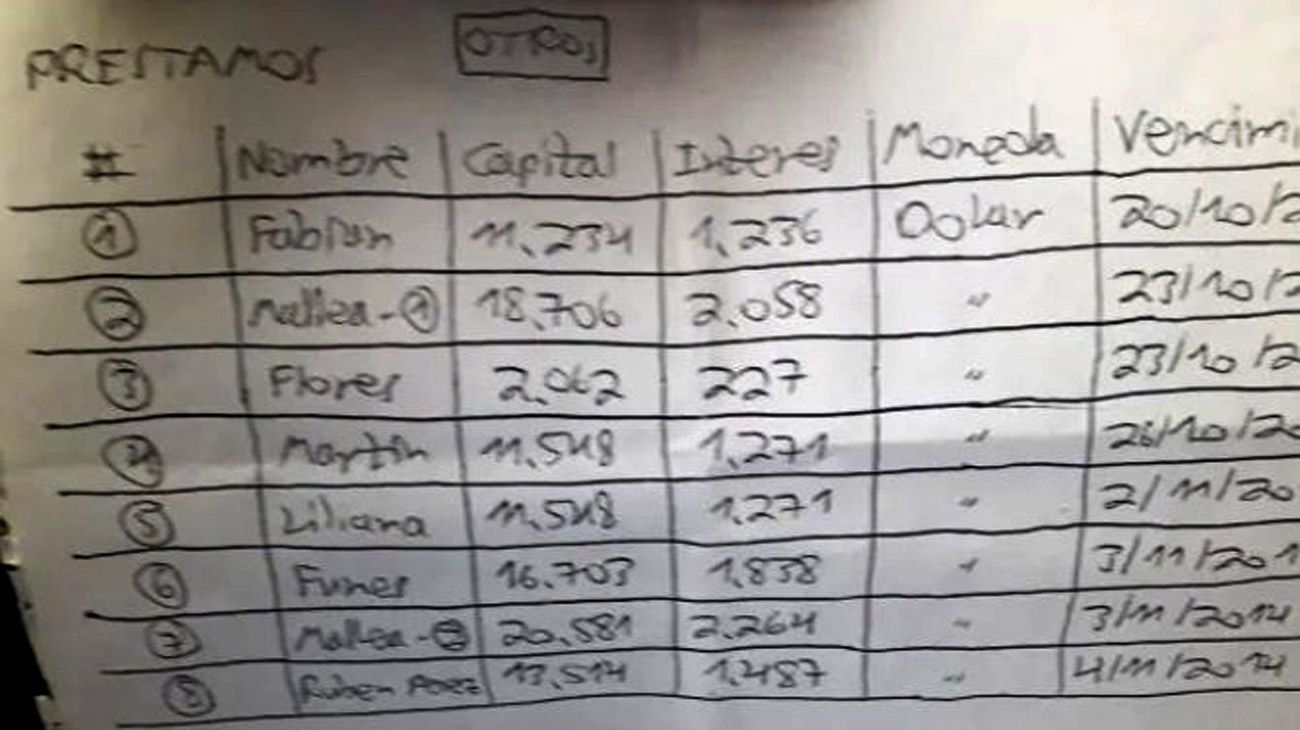 PRESTAMOS OTROS
# Nombre Capital Interes Moneda Vencimi
1 Fabian 11.234 1.236 Dolar 20/10/2
2 Mallea-1 18.706 2.058 " 23/10/2
3 Flores 2.062 227 " 23/10/2
4 Martin 11.548 1.271 " 26/10/20
5 Liliana 11.548 1.271 " 2/11/20
6 Funes 16.703 1.838 " 3/11/201
7 Mallea-2 20.581 2.264 " 3/11/2014
8 Ruben Perez 13.514 1.487 " 4/11/2014